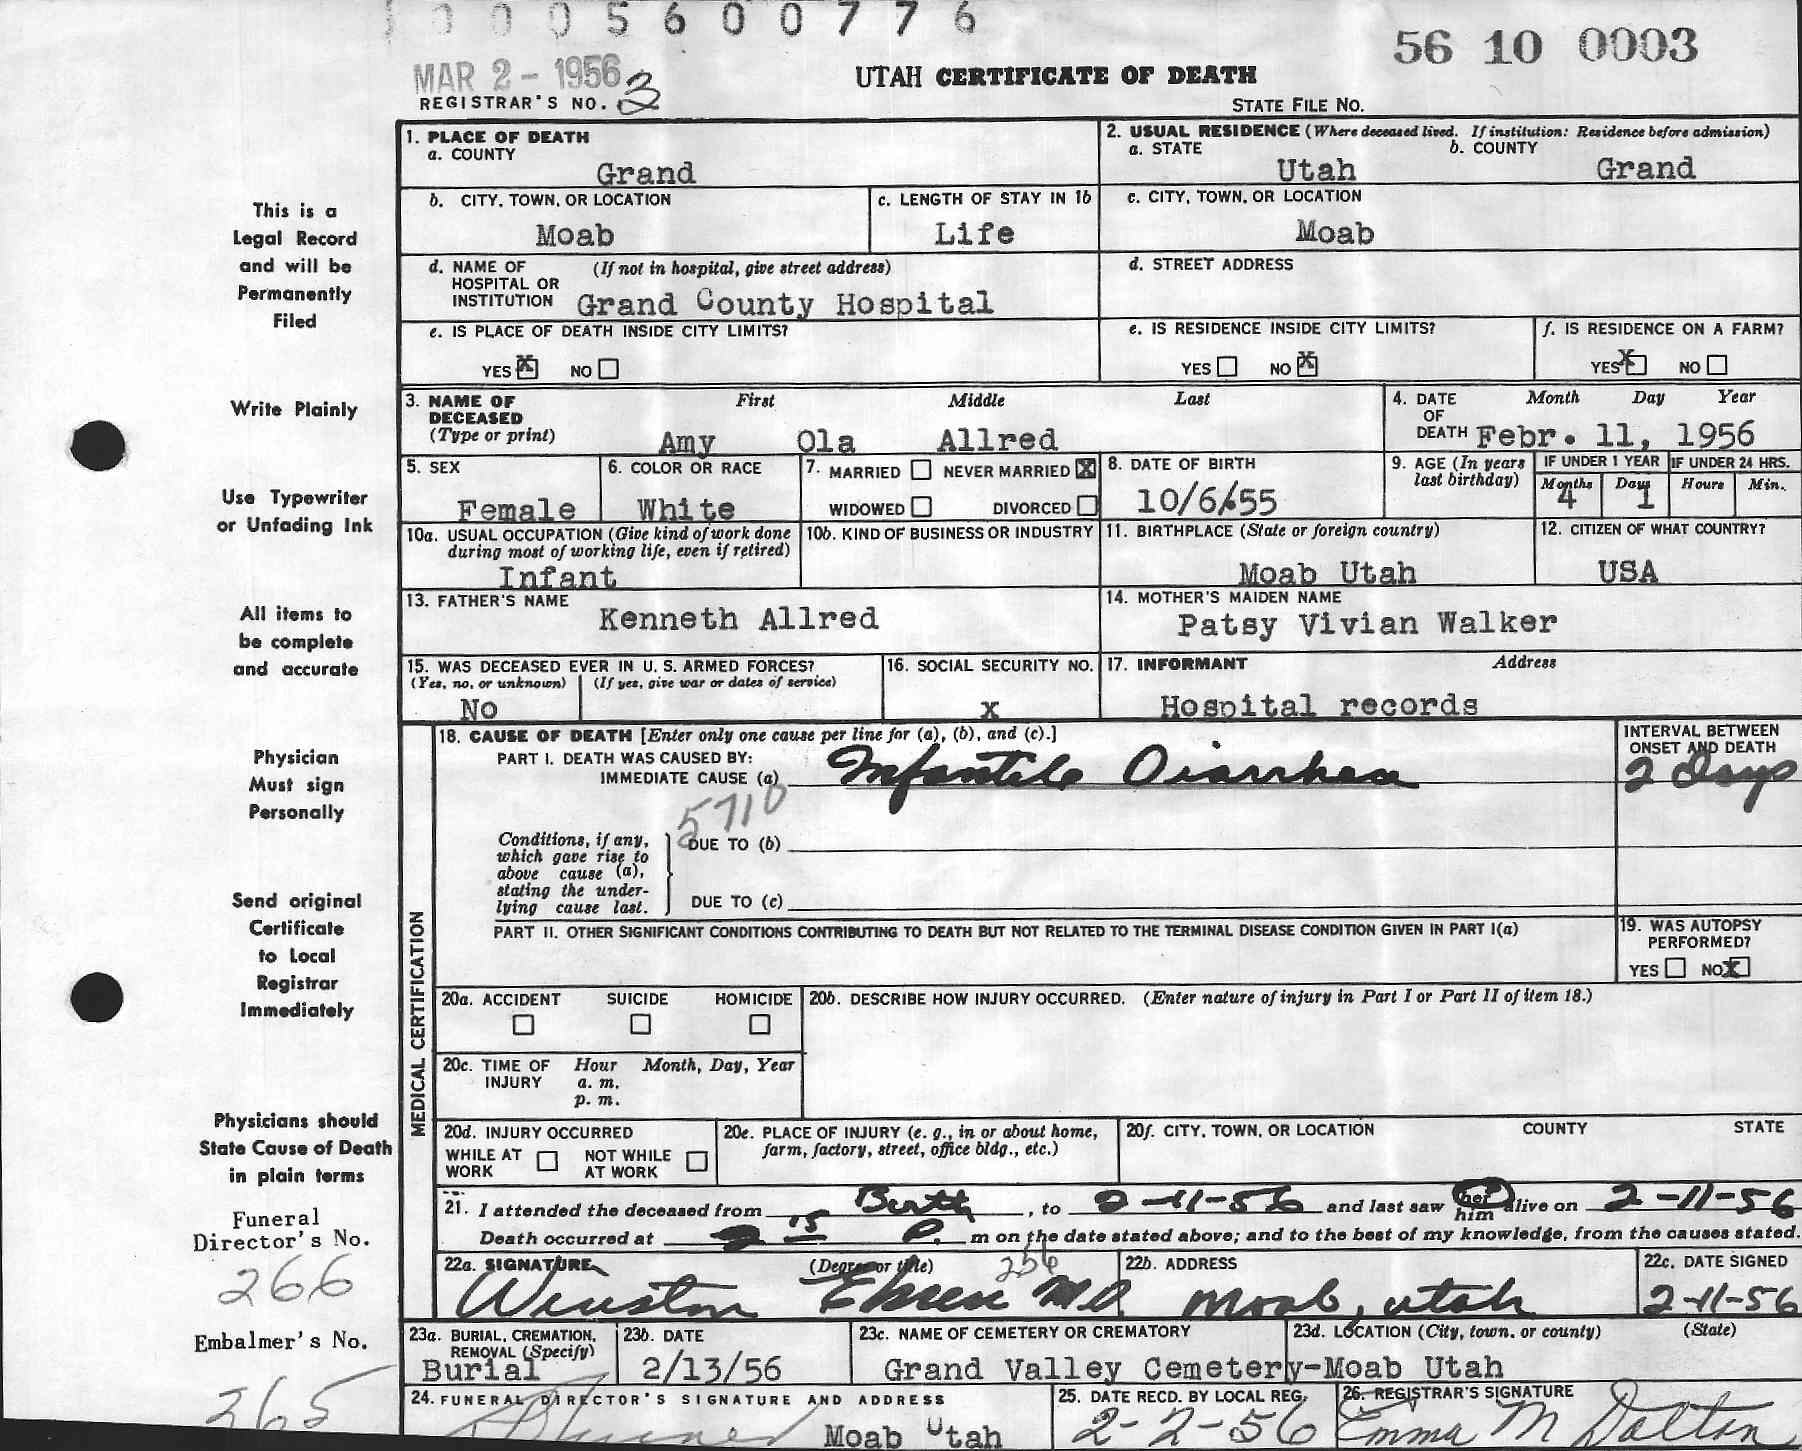 0 0 0 5 6 0 0 7 7 6
56 10 0003
MAR 2 - 1956
UTAH CERTIFICATE OF DEATH
REGISTRAR'S NO. 3
STATE FILE NO.
This is a
Legal Record
and will be
Permanently
Filed
Write Plainly
Use Typewriter
or Unfading Ink
All items to
be complete
and accurate
Physician
Must sign
Personally
Send original
Certificate
to Local
Registrar
Immediately
Physicians should
State Cause of Death
in plain terms
Funeral
Director's No.
266
Embalmer's No.
265
1. PLACE OF DEATH
a. COUNTY
Grand
2. USUAL RESIDENCE (Where deceased lived. If institution: Residence before admission)
a. STATE Utah b. COUNTY Grand
b. CITY, TOWN, OR LOCATION
Moab
c. LENGTH OF STAY IN 1b
Life
c. CITY, TOWN, OR LOCATION
Moab
d. NAME OF (If not in hospital, give street address)
HOSPITAL OR
INSTITUTION Grand County Hospital
d. STREET ADDRESS
e. IS PLACE OF DEATH INSIDE CITY LIMITS?
YES X NO
e. IS RESIDENCE INSIDE CITY LIMITS?
YES NO X
f. IS RESIDENCE ON A FARM?
YES X NO
3. NAME OF DECEASED
(Type or print)
First Middle Last
Amy Ola Allred
4. DATE OF DEATH Month Day Year
Febr. 11, 1956
5. SEX
Female
6. COLOR OR RACE
White
7. MARRIED NEVER MARRIED X
WIDOWED DIVORCED
8. DATE OF BIRTH
10/6/55
9. AGE (In years last birthday)
IF UNDER 1 YEAR IF UNDER 24 HRS.
Months Days Hours Min.
4 1
10a. USUAL OCCUPATION (Give kind of work done
during most of working life, even if retired)
Infant
10b. KIND OF BUSINESS OR INDUSTRY
11. BIRTHPLACE (State or foreign country)
Moab Utah
12. CITIZEN OF WHAT COUNTRY?
USA
13. FATHER'S NAME
Kenneth Allred
14. MOTHER'S MAIDEN NAME
Patsy Vivian Walker
15. WAS DECEASED EVER IN U. S. ARMED FORCES?
(Yes, no, or unknown) (If yes, give war or dates of service)
No
16. SOCIAL SECURITY NO.
x
17. INFORMANT Address
Hospital records
MEDICAL CERTIFICATION
18. CAUSE OF DEATH [Enter only one cause per line for (a), (b), and (c).]
PART I. DEATH WAS CAUSED BY:
IMMEDIATE CAUSE (a) Infantile Diarrhea
INTERVAL BETWEEN
ONSET AND DEATH
2 Days
5710
Conditions, if any,
which gave rise to
above cause (a),
stating the under-
lying cause last.
DUE TO (b)
DUE TO (c)
PART II. OTHER SIGNIFICANT CONDITIONS CONTRIBUTING TO DEATH BUT NOT RELATED TO THE TERMINAL DISEASE CONDITION GIVEN IN PART I(a)
19. WAS AUTOPSY
PERFORMED?
YES NO X
20a. ACCIDENT SUICIDE HOMICIDE
20b. DESCRIBE HOW INJURY OCCURRED. (Enter nature of injury in Part I or Part II of item 18.)
20c. TIME OF INJURY Hour Month, Day, Year
a. m.
p. m.
20d. INJURY OCCURRED
WHILE AT WORK NOT WHILE AT WORK
20e. PLACE OF INJURY (e. g., in or about home,
farm, factory, street, office bldg., etc.)
20f. CITY, TOWN, OR LOCATION COUNTY STATE
21. I attended the deceased from Birth, to 2-11-56 and last saw her him alive on 2-11-56
Death occurred at 2 15 P. m on the date stated above; and to the best of my knowledge, from the causes stated.
22a. SIGNATURE (Degree or title) 256
Winston M.D.
22b. ADDRESS
Moab, Utah
22c. DATE SIGNED
2-11-56
23a. BURIAL, CREMATION,
REMOVAL (Specify)
Burial
23b. DATE
2/13/56
23c. NAME OF CEMETERY OR CREMATORY
23d. LOCATION (City, town, or county) (State)
Grand Valley Cemetery-Moab Utah
24. FUNERAL DIRECTOR'S SIGNATURE AND ADDRESS
Moab Utah
25. DATE RECD. BY LOCAL REG.
2-2-56
26. REGISTRAR'S SIGNATURE
Emma M Dalton